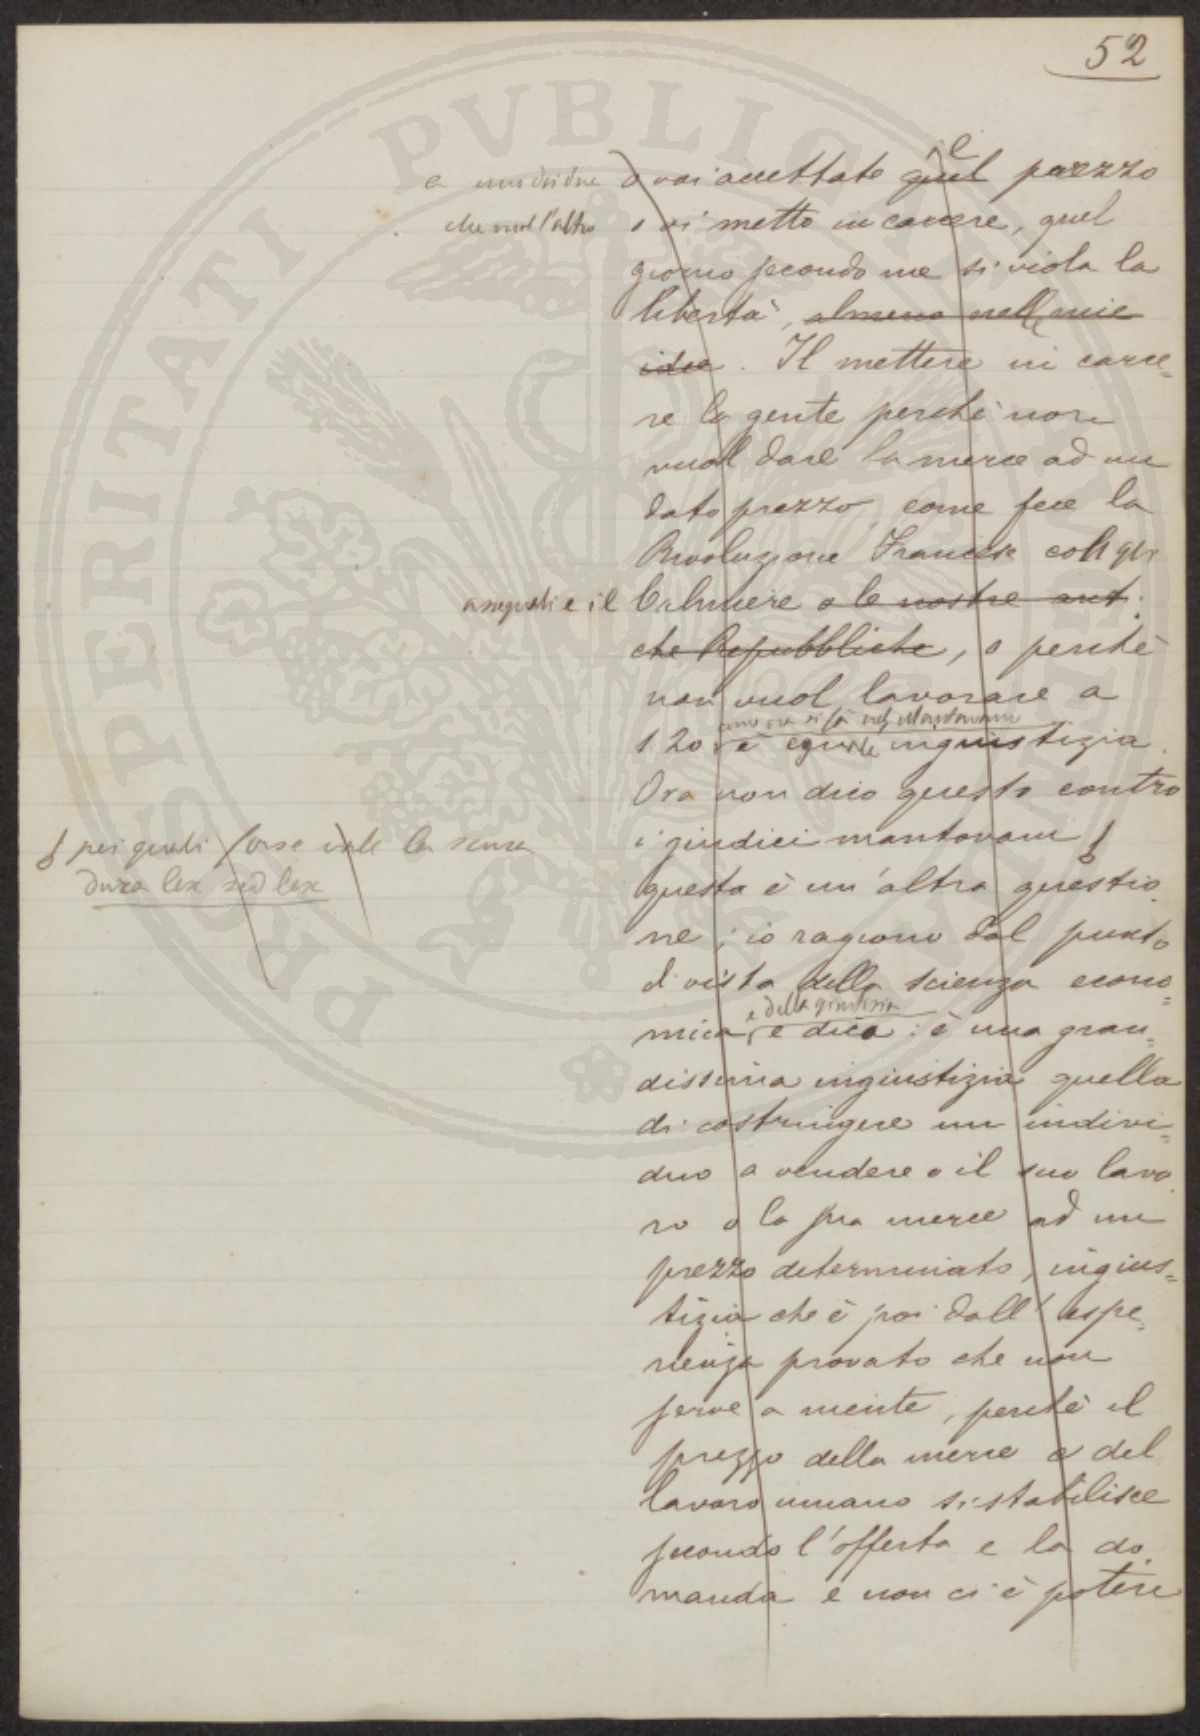 52
o voi accettate quel prezzo
e uno dei due
che vuol l'altro
o vi metto in carcere, quel
giorno secondo me si viola la
libertà, almeno nelle mie
idee. Il mettere in carce=
re la gente perchè non
vuol dare la merce ad un
dato prezzo, come fece la
Rivoluzione Francese cogli
assegnati e il
Calmiere o le nostre anti
che Repubbliche, o perchè
non vuol lavorare a
come ora si fa nel Mantovano
1.20 è eguale ingiustizia.
Ora non dico questo contro
i giudici mantovani
pei quali forse vale la scusa
dura lex sed lex
questa è un'altra questio
ne; io ragiono dal punto
di vista della scienza econo=
e della giustizia
mica, e dico: è una gran=
dissima ingiustizia quella
di costringere un indivi=
duo a vendere o il suo lavo
ro o la sua merce ad un
prezzo determinato, ingius=
tizia che è poi dall'espe=
rienza provato che non
serve a niente, perchè il
prezzo della merce e del
lavoro umano si stabilisce
secondo l'offerta e la do
manda e non ci è potere
PROSPERITATI PUBLICAE